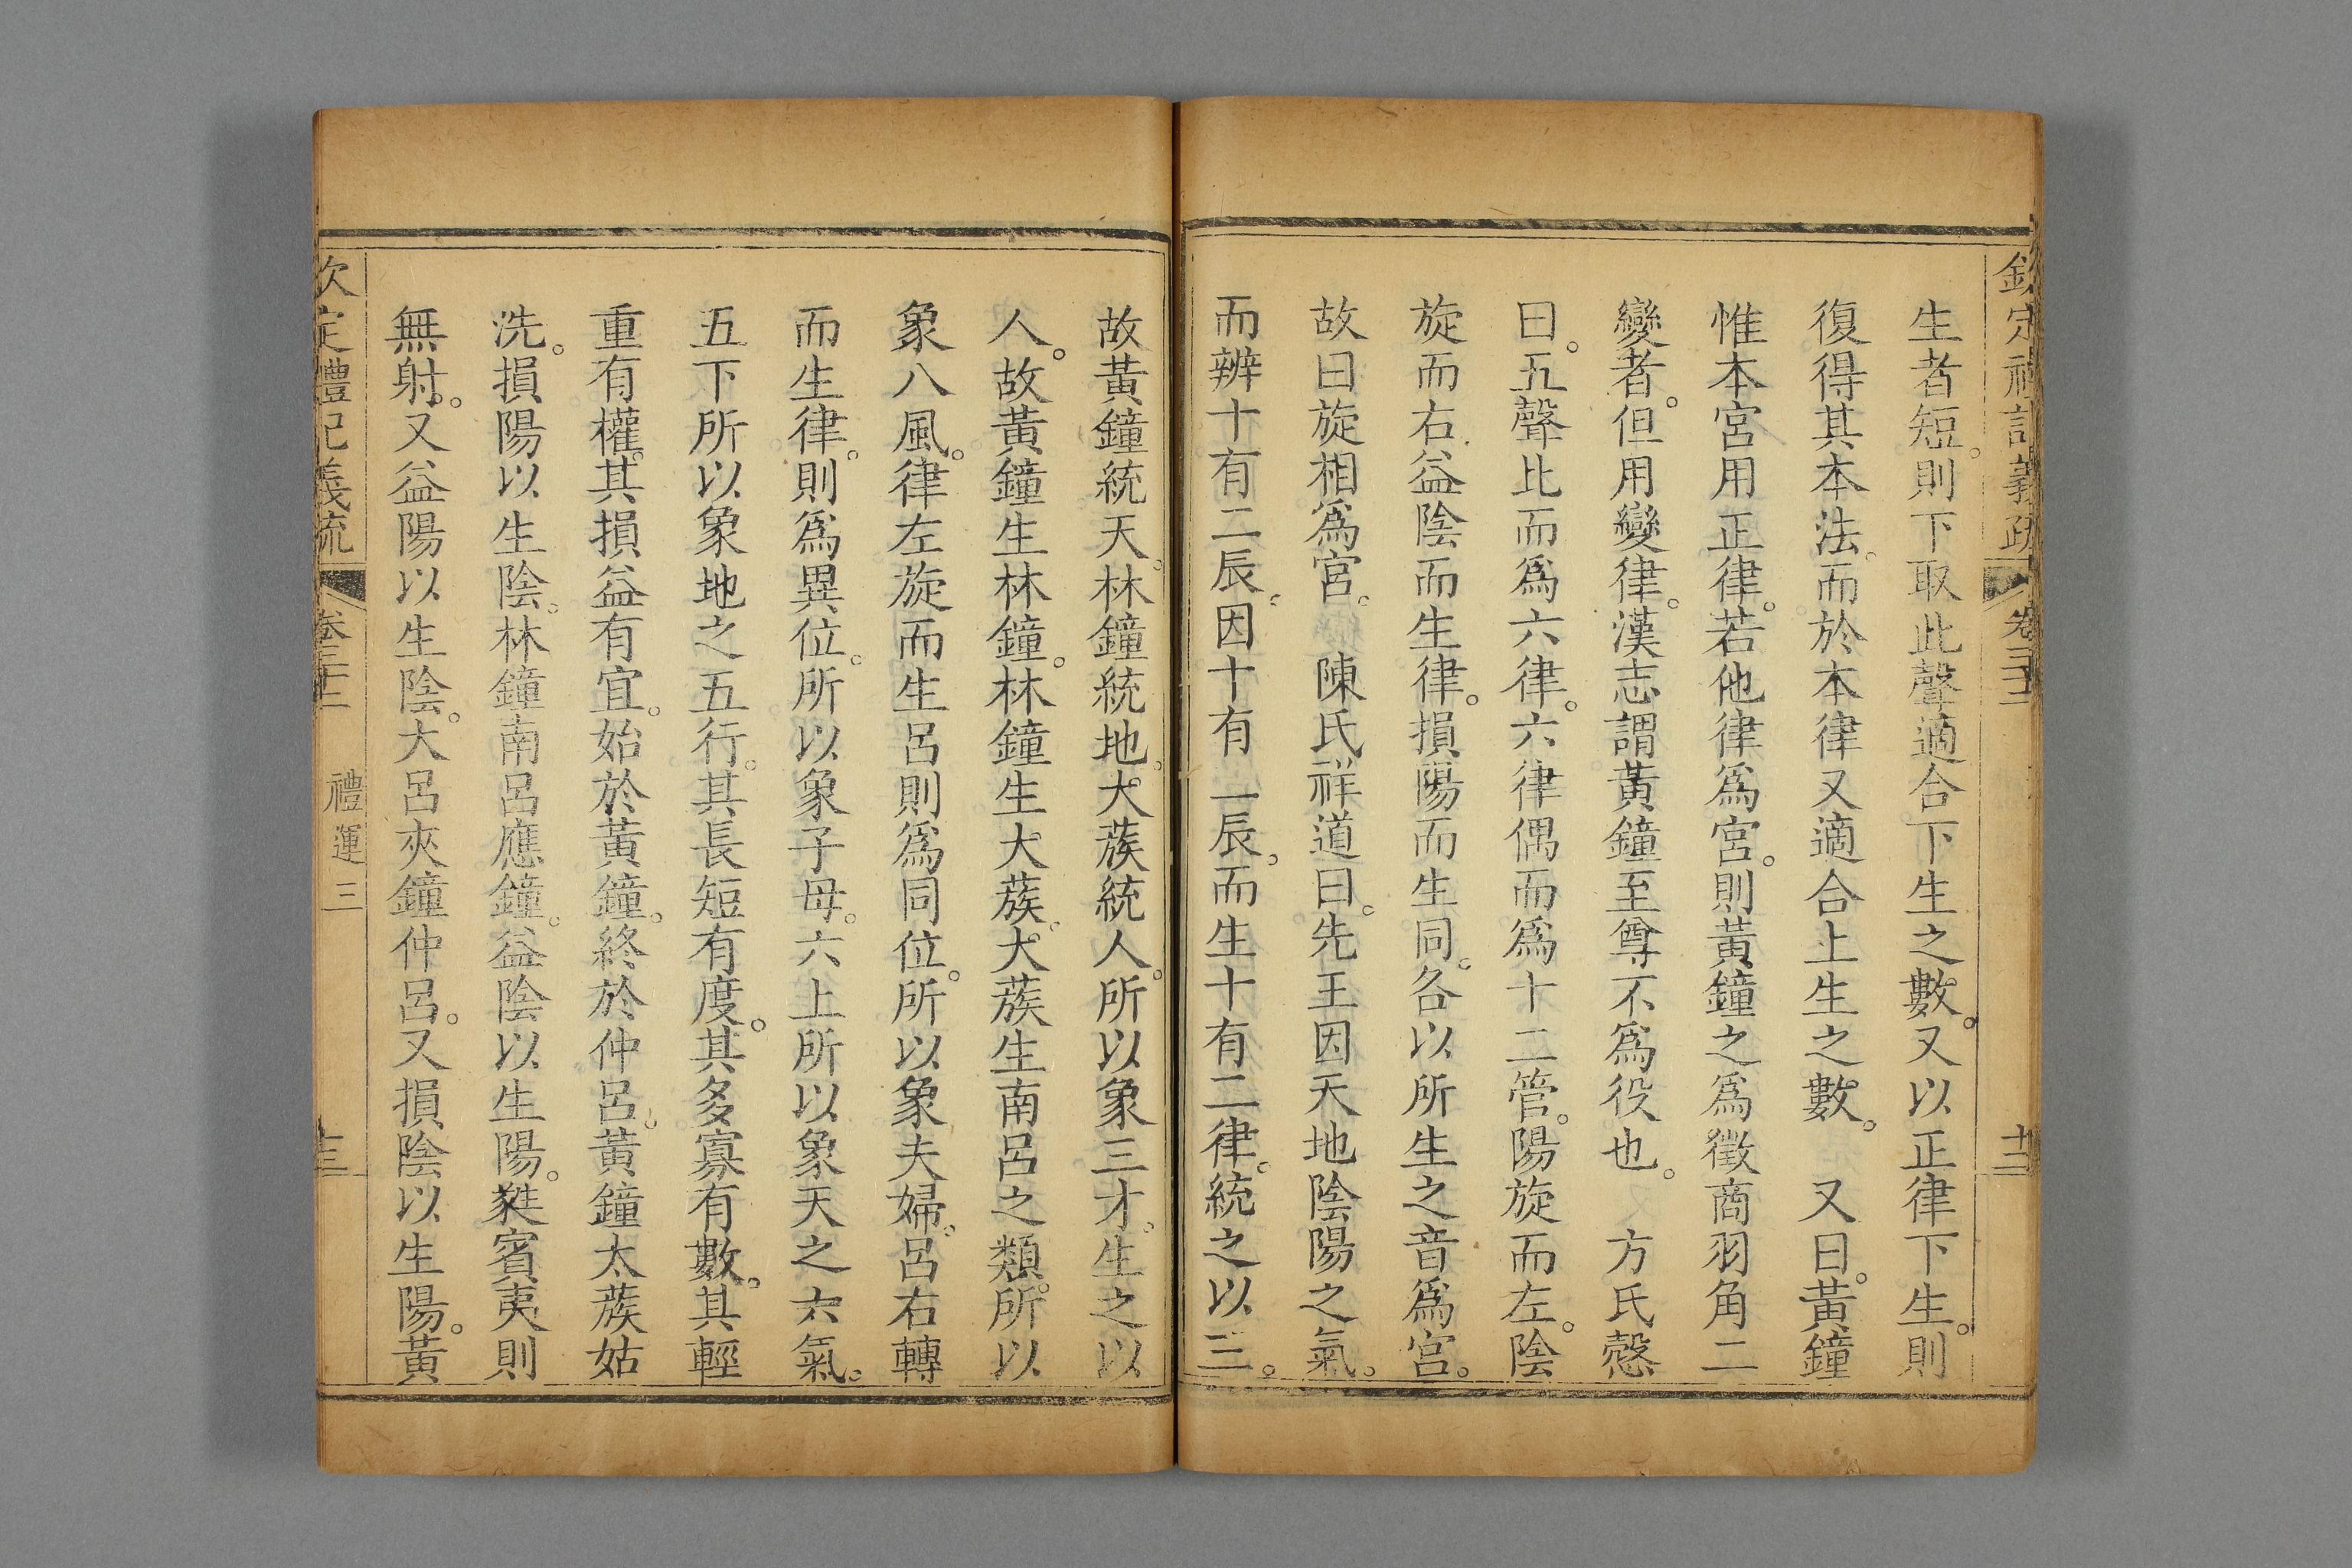 欽定禮記義疏 卷三十二 十二
生者短。則下取此聲適合。下生之數。又以正律下生。則
復得其本法。而於本律又適合上生之數。 又曰。黃鐘
惟本宮用正律。若他律爲宮。則黃鐘之爲徵商羽角二
變者。但用變律。漢志謂黃鐘至尊不爲役也。 方氏慤
曰。五聲比而爲六律。六律偶而爲十二管。陽旋而左。陰
旋而右。益陰而生律。損陽而生同。各以所生之音爲宮。
故曰旋相爲宮。 陳氏祥道曰。先王因天地陰陽之氣。
而辨十有二辰。因十有一辰。而生十有二律。統之以三。
故黃鐘統天。林鐘統地。大蔟統人。所以象三才。生之以
人。故黃鐘生林鐘。林鐘生大蔟。大蔟生南呂之類。所以
象八風。律左旋而生呂則爲同位。所以象夫婦。呂右轉
而生律。則爲異位。所以象子母。六上所以象天之六氣。
五下所以象地之五行。其長短有度。其多寡有數。其輕
重有權。其損益有宜。始於黃鐘。終於仲呂。黃鐘太蔟姑
洗。損陽以生陰。林鐘南呂應鐘。益陰以生陽。蕤賓夷則
無射。又益陽以生陰。大呂夾鐘仲呂。又損陰以生陽。黃
欽定禮記義疏 卷三十二 禮運 三 十三